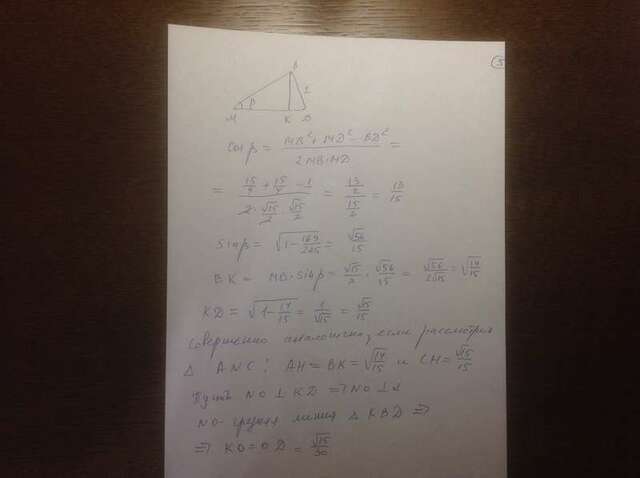 5
B
β
1
M
K
D
cos β = (MB² + MD² - BD²) / (2MB·MD) =
= (15/4 + 15/4 - 1) / (2 · √15/2 · √15/2) = (13/2) / (15/2) = 13/15
sin β = √(1 - 169/225) = √56/15
BK = MB · sin β = √15/2 · √56/15 = √56/(2√15) = √(14/15)
KD = √(1 - 14/15) = 1/√15 = √15/15
Совершенно аналогично, если рассмотрим
Δ ANC : AH = BK = √(14/15) и CH = √15/15
Пусть NO ⊥ KD ⇒ NO ⊥ α
NO - средняя линия Δ KBD ⇒
⇒ KO = OD = √15/30